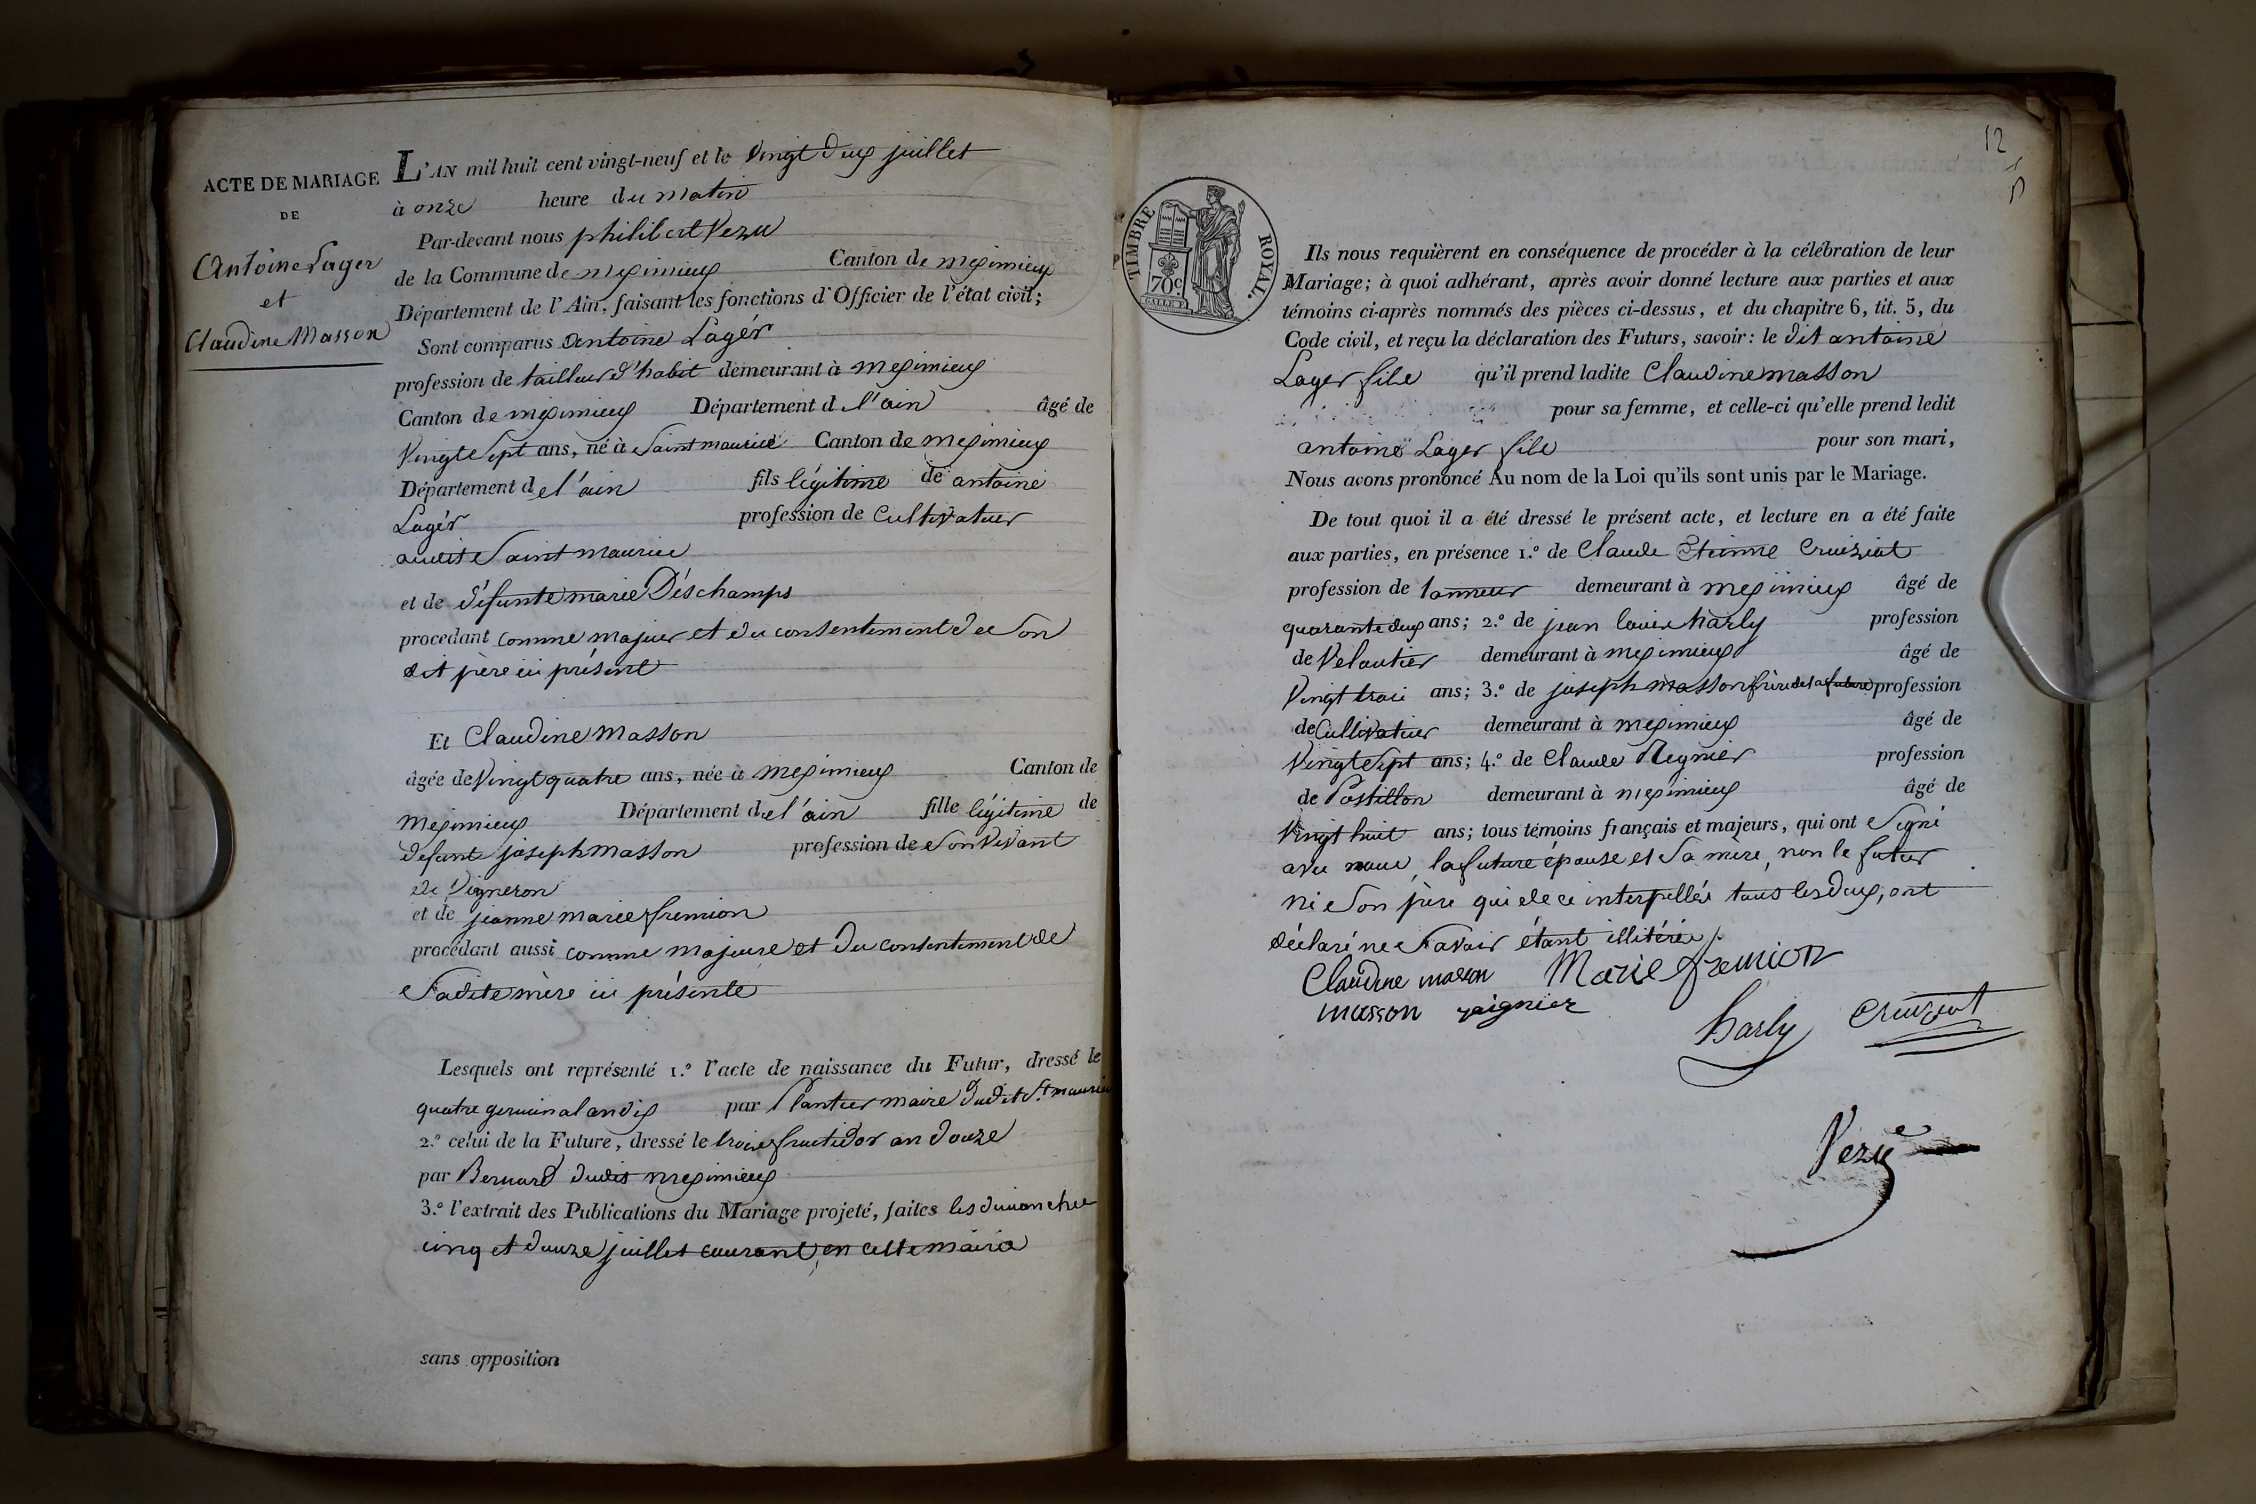 ACTE DE MARIAGE
DE
Antoine Lager
et
Claudine Masson
L'AN mil huit cent vingt-neuf et le vingt deux juillet
à onze heure du matin
Par-devant nous philibert Vezu
de la Commune de meximieux Canton de meximieux
Département de l'Ain, faisant les fonctions d'Officier de l'état civil;
Sont comparus antoine Lagér
profession de tailleur d'habit demeurant à meximieux
Canton de méximieux Département de l'ain âgé de
vingt Sept ans, né à Saint maurice Canton de meximieux
Département de l'ain fils légitime de antoine
Lagér profession de Cultivateur
audit Saint maurice
et de défunte marie Déschamps
procedant comme majeur et du consentement de Son
dit père ici présent
Et Claudine Masson
âgée de Vingt quatre ans, née à meximieux Canton de
meximieux Département de l'ain fille légitime de
defunt joseph masson profession de Son Vivant
de Vigneron
et de jeanne marie fremion
procédant aussi comme majeure et du consentement de
Sadite mère ici présente
Lesquels ont représenté 1.º l'acte de naissance du Futur, dressé le
quatre germinal an dix par Plantier maire dudit St maurice
2.º celui de la Future, dressé le trois fructidor an douze
par Bernard dudit meximieux
3.º l'extrait des Publications du Mariage projeté, faites les dimanches
cinq et douze juillet courant, en cette mairie
sans opposition
12
TIMBRE ROYAL.
70c
Ils nous requièrent en conséquence de procéder à la célébration de leur
Mariage; à quoi adhérant, après avoir donné lecture aux parties et aux
témoins ci-après nommés des pièces ci-dessus, et du chapitre 6, tit. 5, du
Code civil, et reçu la déclaration des Futurs, savoir: le dit antoine
Lager fils qu'il prend ladite Claudine masson
pour sa femme, et celle-ci qu'elle prend ledit
antoine Lager fils pour son mari,
Nous avons prononcé Au nom de la Loi qu'ils sont unis par le Mariage.
De tout quoi il a été dressé le présent acte, et lecture en a été faite
aux parties, en présence 1.º de Claude Etienne Cruiziat
profession de tanneur demeurant à meximieux âgé de
quarante deux ans; 2.º de jean louis harly profession
de Veloutier demeurant à meximieux âgé de
Vingt trois ans; 3.º de joseph masson frère de la future profession
de Cultivateur demeurant à meximieux âgé de
Vingt Sept ans; 4.º de Claude Regnier profession
de Postillon demeurant à meximieux âgé de
Vingt huit ans; tous témoins français et majeurs, qui ont Signé
avec nous, la future épouse et Sa mère, non le futur
ni Son père qui de ce interpellés tous les deux, ont
déclaré ne Savoir étant illitérés
Claudine masson Marie fremion
masson reignier
harly Cruiziat
Vezu